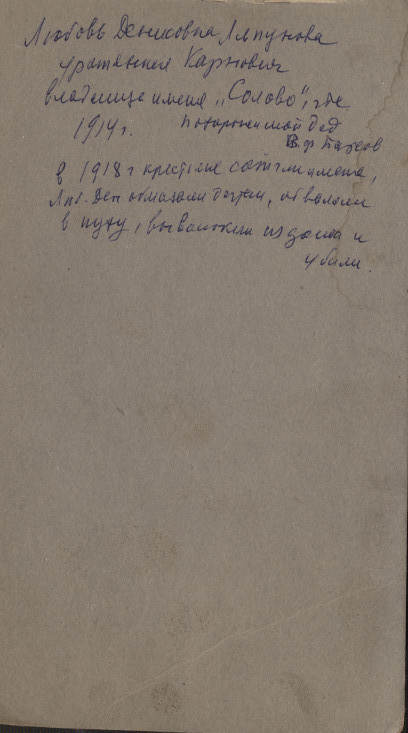 Любовь Денисовна Ляпунова
урожденная Карпович
владелица имения „Солово", где
1914 г. похоронен мой дед
В. Ф.
в 1918 г крестьяне сожгли имение,
Люб. Ден обмазали дегтем, обваляли
в пуху, выволокли из дома и
убили.